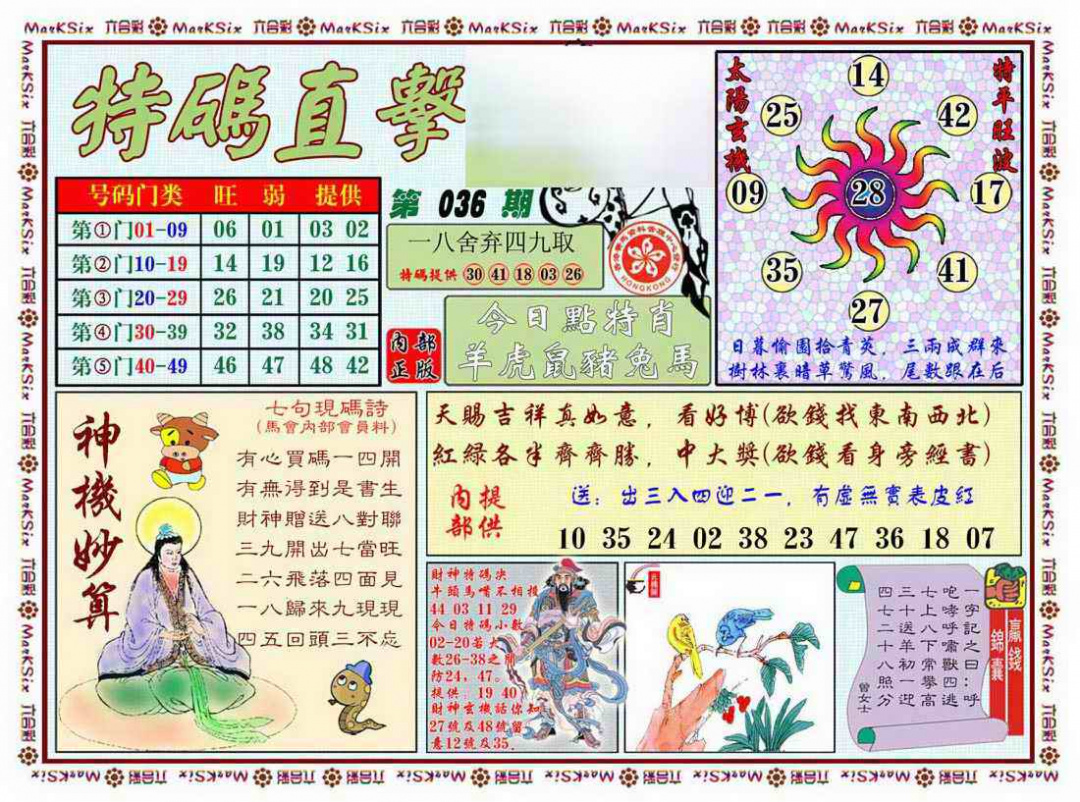 MarKSix 六合彩 MarKSix 六合彩 MarKSix 六合彩 MarKSix 六合彩 MarKSix 六合彩 MarKSix 六合彩 MarKSix 六合彩 MarKSix
特碼直擊
号码门类 旺 弱 提供
第①门01-09 06 01 03 02
第②门10-19 14 19 12 16
第③门20-29 26 21 20 25
第④门30-39 32 38 34 31
第⑤门40-49 46 47 48 42
第 036 期
一八舍弃四九取
特碼提供 30 41 18 03 26
HONGKONG
今日點特肖
羊虎鼠豬兔馬
內部
正版
太陽玄機
特平旺波
14
25 42
09 28 17
35 41
27
日暮愉園拾青英，三兩成群來
樹林裏暗草驚風，尾數跟在后
神機妙算
七句現碼詩
(馬會內部會員料)
有心買碼一四開
有無得到是書生
財神贈送八對聯
三九開出七當旺
二六飛落四面見
一八歸來九現現
四五回頭三不忘
天賜吉祥真如意，看好博(欲錢找東南西北)
紅緑各半齊齊勝，中大獎(欲錢看身旁經書)
內部提供
送：出三入四迎二一，有虛無實表皮紅
10 35 24 02 38 23 47 36 18 07
財神特碼决
牛頭馬嘴不相投
44 03 11 29
今日特碼小數
02-20若大
數26-38之間
防24，47。
提供：19 40
財神玄機話你知
27號及48號留
意12號及35.
贏錢
錦囊
一字記之曰：呼
咆哮呼嘯獸四逃
七上八下常擧高
三十送羊初一迎
四七二十八照分
曾女士